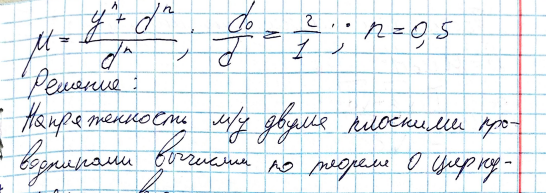 μ = (yⁿ + dⁿ)/dⁿ ; d₀/d = 2/1 ; n = 0,5
Решение:
Напряженность м/у двумя плоскими про-
водниками вычислим по теореме о цирку-